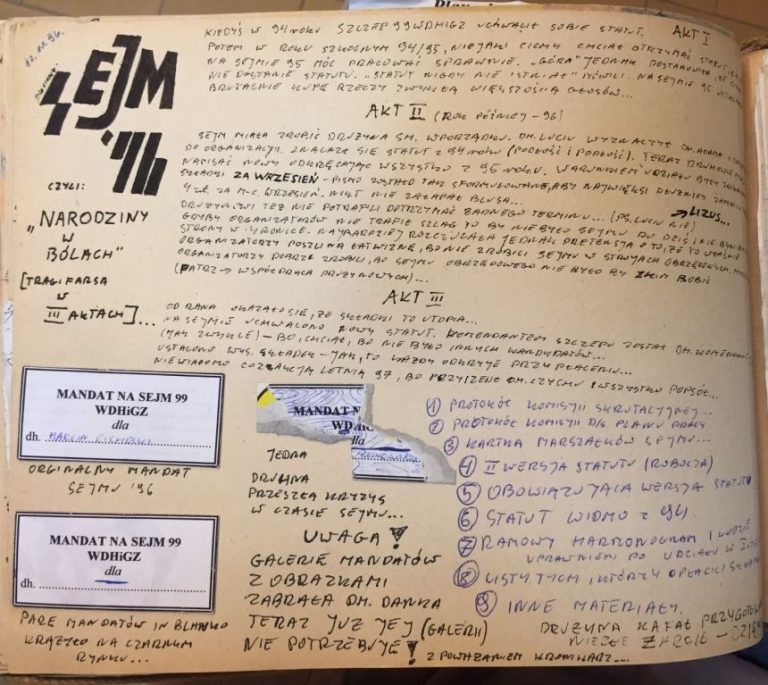 12.10.96.
SEJM
'96
CZYLI:
„NARODZINY
W
BÓLACH"
[TRAGIFARSA
W
III AKTACH]...
AKT I
KIEDYŚ W 94 ROKU SZCZEP 99 WDHIGZ UCHWALIŁ SOBIE STATUT.
POTEM W ROKU SZKOLNYM 94/95, NIEJAKI CICHY CHCIAŁ OTRZYMAĆ STATUT
NA SEJMIE 95 MÓC PRACOWAĆ SPRAWNIE. „GÓRA" JEDNAK POSTANOWIŁA, ŻE
NIE DOSTANIE STATUTU. „STATUT NIGDY NIE ISTNIAŁ" MÓWILI. NA SEJMIE 95
BRUTALNIE KUPĘ RZECZY ZWYKŁĄ WIĘKSZOŚCIĄ GŁOSÓW...
AKT II (ROK PÓŹNIEJ - 96)
SEJM MIAŁA ZROBIĆ DRUŻYNA SM. WPORZĄDKU. DH. LUCIU WYZNACZYŁ DH. ADAMA
DO ORGANIZACJI. ZNALAZŁ SIĘ STATUT Z 94 ROKU (PODŁOŚĆ I PODŁOŚĆ). TERAZ
NAPISAĆ NOWY ODKRĘCAJĄC WSZYSTKO Z 95 ROKU. WARUNKIEM UDZIAŁU BYŁY
SKŁADKI ZA WRZESIEŃ - PISMO ZOSTAŁO TAK SFORMUŁOWANE, ABY NAJWIĘKSI
4 ZŁ. ZA M-C. WRZESIEŃ. NIKT NIE ZAŁAPAŁ BLUSA...
DRUŻYNOWI TEŻ NIE POTRAFILI DOTRZYMAĆ ŻADNEGO TERMINU... (PS. LUCIU NIE) → LIZUS...
GDYBY ORGANIZATORÓW NIE TRAFIŁ SZLAG TO BY NIE BYŁO SEJMU DO DZIŚ
STRONY W KRONICE. NAJBARDZIEJ ROZCZULAŁA JEDNAK PRETENSJA O TO, ŻE TO WŁAŚNIE
ORGANIZATORZY POSZLI NA ŁATWIZNĘ, BO NIE ZROBILI SEJMU W STROJACH OBRZĘDOWYCH.
ORGANIZATORZY DOBRZE ZROBILI, BO SEJMU OBRZĘDOWEGO NIE BYŁO BY Z KIM ROBIĆ
(PATRZ → WSPÓŁPRACA DRUŻYNOWYCH)...
AKT III
OD RANA OKAZAŁO SIĘ, ŻE SKŁADKI TO UTOPIA...
NA SEJMIE UCHWALONO NOWY STATUT. KOMENDANTEM SZCZEPU ZOSTAŁ DH. KOMENDANT
(JAK ZWYKLE) - BO CHCIAŁ, BO NIE BYŁO INNYCH KANDYDATÓW...
USTALONO WYS. SKŁADEK - JAK, TO KAŻDY ODKRYJE PRZY PŁACENIU...
NIEWIADOMO CO Z AKCJĄ LETNIĄ 97, BO PRZYSZEDŁ DH. CZYCHU I WSZYSTKO POPSUŁ...
MANDAT NA SEJM 99
WDHiGZ
dla
dh. MARCIN
ORGINALNY MANDAT
SEJMU '96
MANDAT NA SEJM 99
WDHiGZ
dla
dh.
PARĘ MANDATÓW IN BLANKO
KRĄŻYŁO NA CZARNYM
RYNKU...
MANDAT N
WDH
JEDNA
DRUHNA
PRZESZŁA KRYZYS
W CZASIE SEJMU...
UWAGA!
GALERIĘ MANDATÓW
Z OBRAZKAMI
ZABRAŁA DH. DANKA
TERAZ JUŻ JEJ (GALERII)
NIE POTRZEBUJE!
Z POWAŻANIEM KRONIKARZ...
① PROTOKÓŁ KOMISJI SKRUTACYJNEJ...
② PROTOKÓŁ KOMISJI D/S. PLANU PRACY
③ KARTKA MARSZAŁKÓW SEJMU...
④ II WERSJA STATUTU (ROBOCZA)
⑤ OBOWIĄZUJĄCA WERSJA STATUTU
⑥ STATUT WIDMO Z 94
⑦ RAMOWY HARMONOGRAM I LUDZIE
UPRAWNIENI DO UDZIAŁU W
⑧ LISTY TYCH, KTÓRZY OPŁACILI SKŁADKI
⑨ INNE MATERIAŁY.
DRUŻYNA KAFAŁ
ŻARCIE -